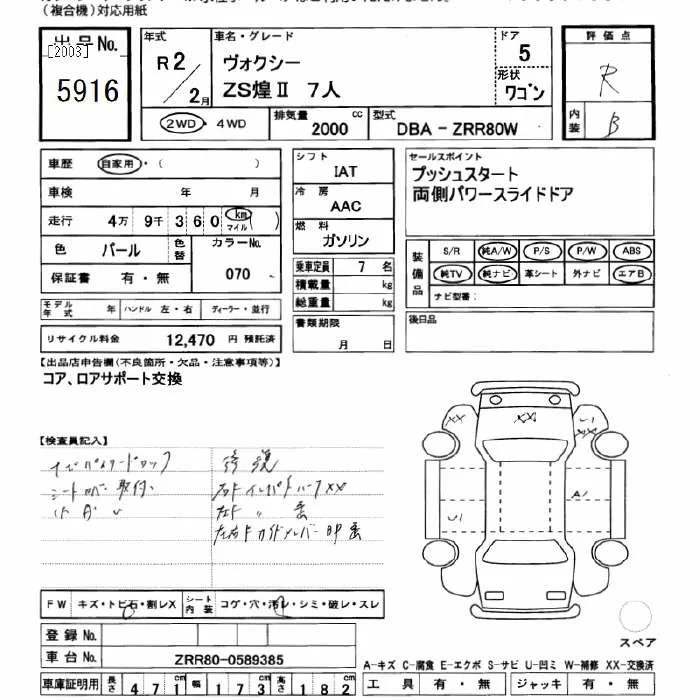 （複合機）対応用紙
出品No.
[2003]
5916
年式
R2/2月
車名・グレード
ヴォクシー
ZS煌Ⅱ 7人
ドア
5
形状
ワゴン
評価点
R
内装
B
2WD・4WD
排気量 cc
2000
型式
DBA - ZRR80W
車歴 自家用・（ ）
車検 年 月
走行 4万 9千 3 6 0 km マイル（ ）
色 パール 色替 カラーNo.
070
保証書 有・無
モデル年式 年 ハンドル 左・右 ディーラー・並行
リサイクル料金 12,470 円 預託済
シフト
IAT
冷房
AAC
燃料
ガソリン
乗車定員 7 名
積載量 kg
総重量 kg
書類期限
月 日
セールスポイント
プッシュスタート
両側パワースライドドア
装備品
S/R 純A/W P/S P/W ABS
純TV 純ナビ 革シート 外ナビ エアB
ナビ型番：
後日品
【出品店申告欄（不良箇所・欠品・注意事項等）】
コア、ロアサポート交換
【検査員記入】
ナビパスワードロック
シートカバー取付
修復
XX
XX
XX
A1
U1
FW キズ・トビ石・割レX シート内装 コゲ・穴・汚レ・シミ・破レ・スレ
登録No.
車台No. ZRR80-0589385
車庫証明用 長さ 471cm 幅 173cm 高さ 182cm
スペア
A-キズ C-腐食 E-エクボ S-サビ U-凹ミ W-補修 XX-交換済
工具 有・無 ジャッキ 有・無